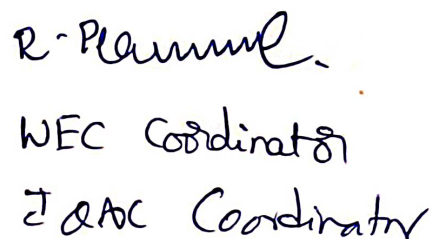 R.
WEC Coordinator
IQAC Coordinator